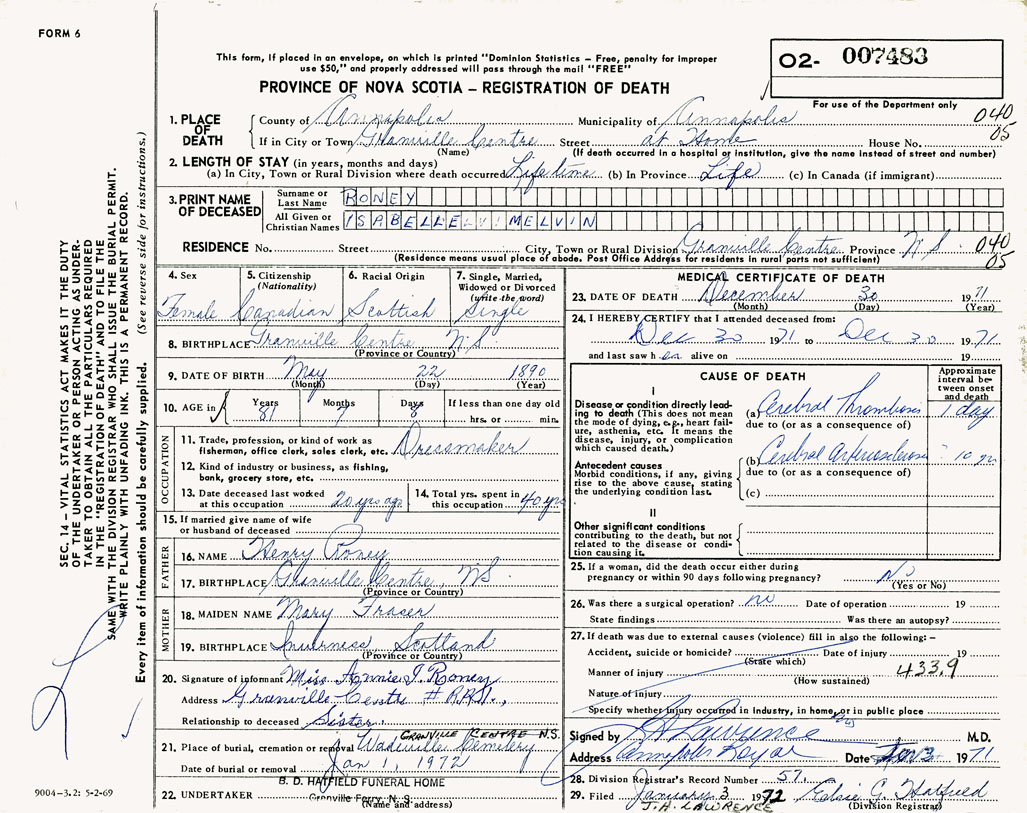 FORM 6
This form, if placed in an envelope, on which is printed "Dominion Statistics – Free, penalty for improper
use $50," and properly addressed will pass through the mail "FREE"
O2- 007483
For use of the Department only
PROVINCE OF NOVA SCOTIA – REGISTRATION OF DEATH
1. PLACE OF DEATH
County of Annapolis Municipality of Annapolis 040
If in City or Town Granville Centre Street at Home House No. 05
(Name) (If death occurred in a hospital or institution, give the name instead of street and number)
2. LENGTH OF STAY (in years, months and days)
(a) In City, Town or Rural Division where death occurred Lifetime (b) In Province Life (c) In Canada (if immigrant)
3. PRINT NAME OF DECEASED
Surname or Last Name RONEY
All Given or Christian Names ISABELLE MELVIN
RESIDENCE No. Street City, Town or Rural Division Granville Centre Province N.S. 040
(Residence means usual place of abode. Post Office Address for residents in rural parts not sufficient) 05
4. Sex Female
5. Citizenship (Nationality) Canadian
6. Racial Origin Scottish
7. Single, Married, Widowed or Divorced (write the word) Single
8. BIRTHPLACE Granville Centre N.S.
(Province or Country)
9. DATE OF BIRTH May 22 1890
(Month) (Day) (Year)
10. AGE in Years 81 Months 7 Days 8 If less than one day old
hrs. or min.
OCCUPATION
11. Trade, profession, or kind of work as
fisherman, office clerk, sales clerk, etc. Dressmaker
12. Kind of industry or business, as fishing,
bank, grocery store, etc.
13. Date deceased last worked at this occupation 20 yrs ago
14. Total yrs. spent in this occupation 40 yrs
15. If married give name of wife
or husband of deceased
FATHER
16. NAME Henry Roney
17. BIRTHPLACE Granville Centre, NS.
(Province or Country)
MOTHER
18. MAIDEN NAME Mary Fraser
19. BIRTHPLACE Inverness Scotland
(Province or Country)
20. Signature of informant Miss Annie J. Roney
Address Granville Centre # RR1.,
Relationship to deceased Sister.
GRANVILLE CENTRE N.S.
21. Place of burial, cremation or removal Wadeville Cemetery
Date of burial or removal Jan 1, 1972
B. D. HATFIELD FUNERAL HOME
22. UNDERTAKER Granville Ferry, N. S.
(Name and address)
MEDICAL CERTIFICATE OF DEATH
23. DATE OF DEATH December 30 1971
(Month) (Day) (Year)
24. I HEREBY CERTIFY that I attended deceased from:
Dec 30 1971 to Dec 30 1971
and last saw her alive on 19
CAUSE OF DEATH
Approximate interval between onset and death
I
Disease or condition directly leading
to death (This does not mean
the mode of dying, e.g., heart failure,
asthenia, etc. It means the
disease, injury, or complication
which caused death.)
(a) Cerebral Thrombosis 1 day
due to (or as a consequence of)
Antecedent causes
Morbid conditions, if any, giving
rise to the above cause, stating
the underlying condition last.
(b) Cerebral Arteriosclerosis 10 yr
due to (or as a consequence of)
(c)
II
Other significant conditions
contributing to the death, but not
related to the disease or condition
causing it.
25. If a woman, did the death occur either during
pregnancy or within 90 days following pregnancy? No
(Yes or No)
26. Was there a surgical operation? no Date of operation 19
State findings Was there an autopsy?
27. If death was due to external causes (violence) fill in also the following: –
Accident, suicide or homicide? Date of injury 19
(State which)
Manner of injury 433.9
(How sustained)
Nature of injury
Specify whether injury occurred in industry, in home, or in public place
Signed by Lawrence M.D.
Address Annapolis Royal Date Jan 3 1971
28. Division Registrar's Record Number 57.
29. Filed January 3 1972 Elsie G. Hatfield
J.H. LAWRENCE (Division Registrar)
SEC. 14 – VITAL STATISTICS ACT MAKES IT THE DUTY
OF THE UNDERTAKER OR PERSON ACTING AS UNDERTAKER
TO OBTAIN ALL THE PARTICULARS REQUIRED
IN THE "REGISTRATION OF DEATH" AND TO FILE THE
SAME WITH THE DIVISION REGISTRAR WHO SHALL ISSUE BURIAL PERMIT.
WRITE PLAINLY WITH UNFADING INK. THIS IS A PERMANENT RECORD.
Every item of information should be carefully supplied. (See reverse side for instructions.)
9004-3.2: 5-2-69